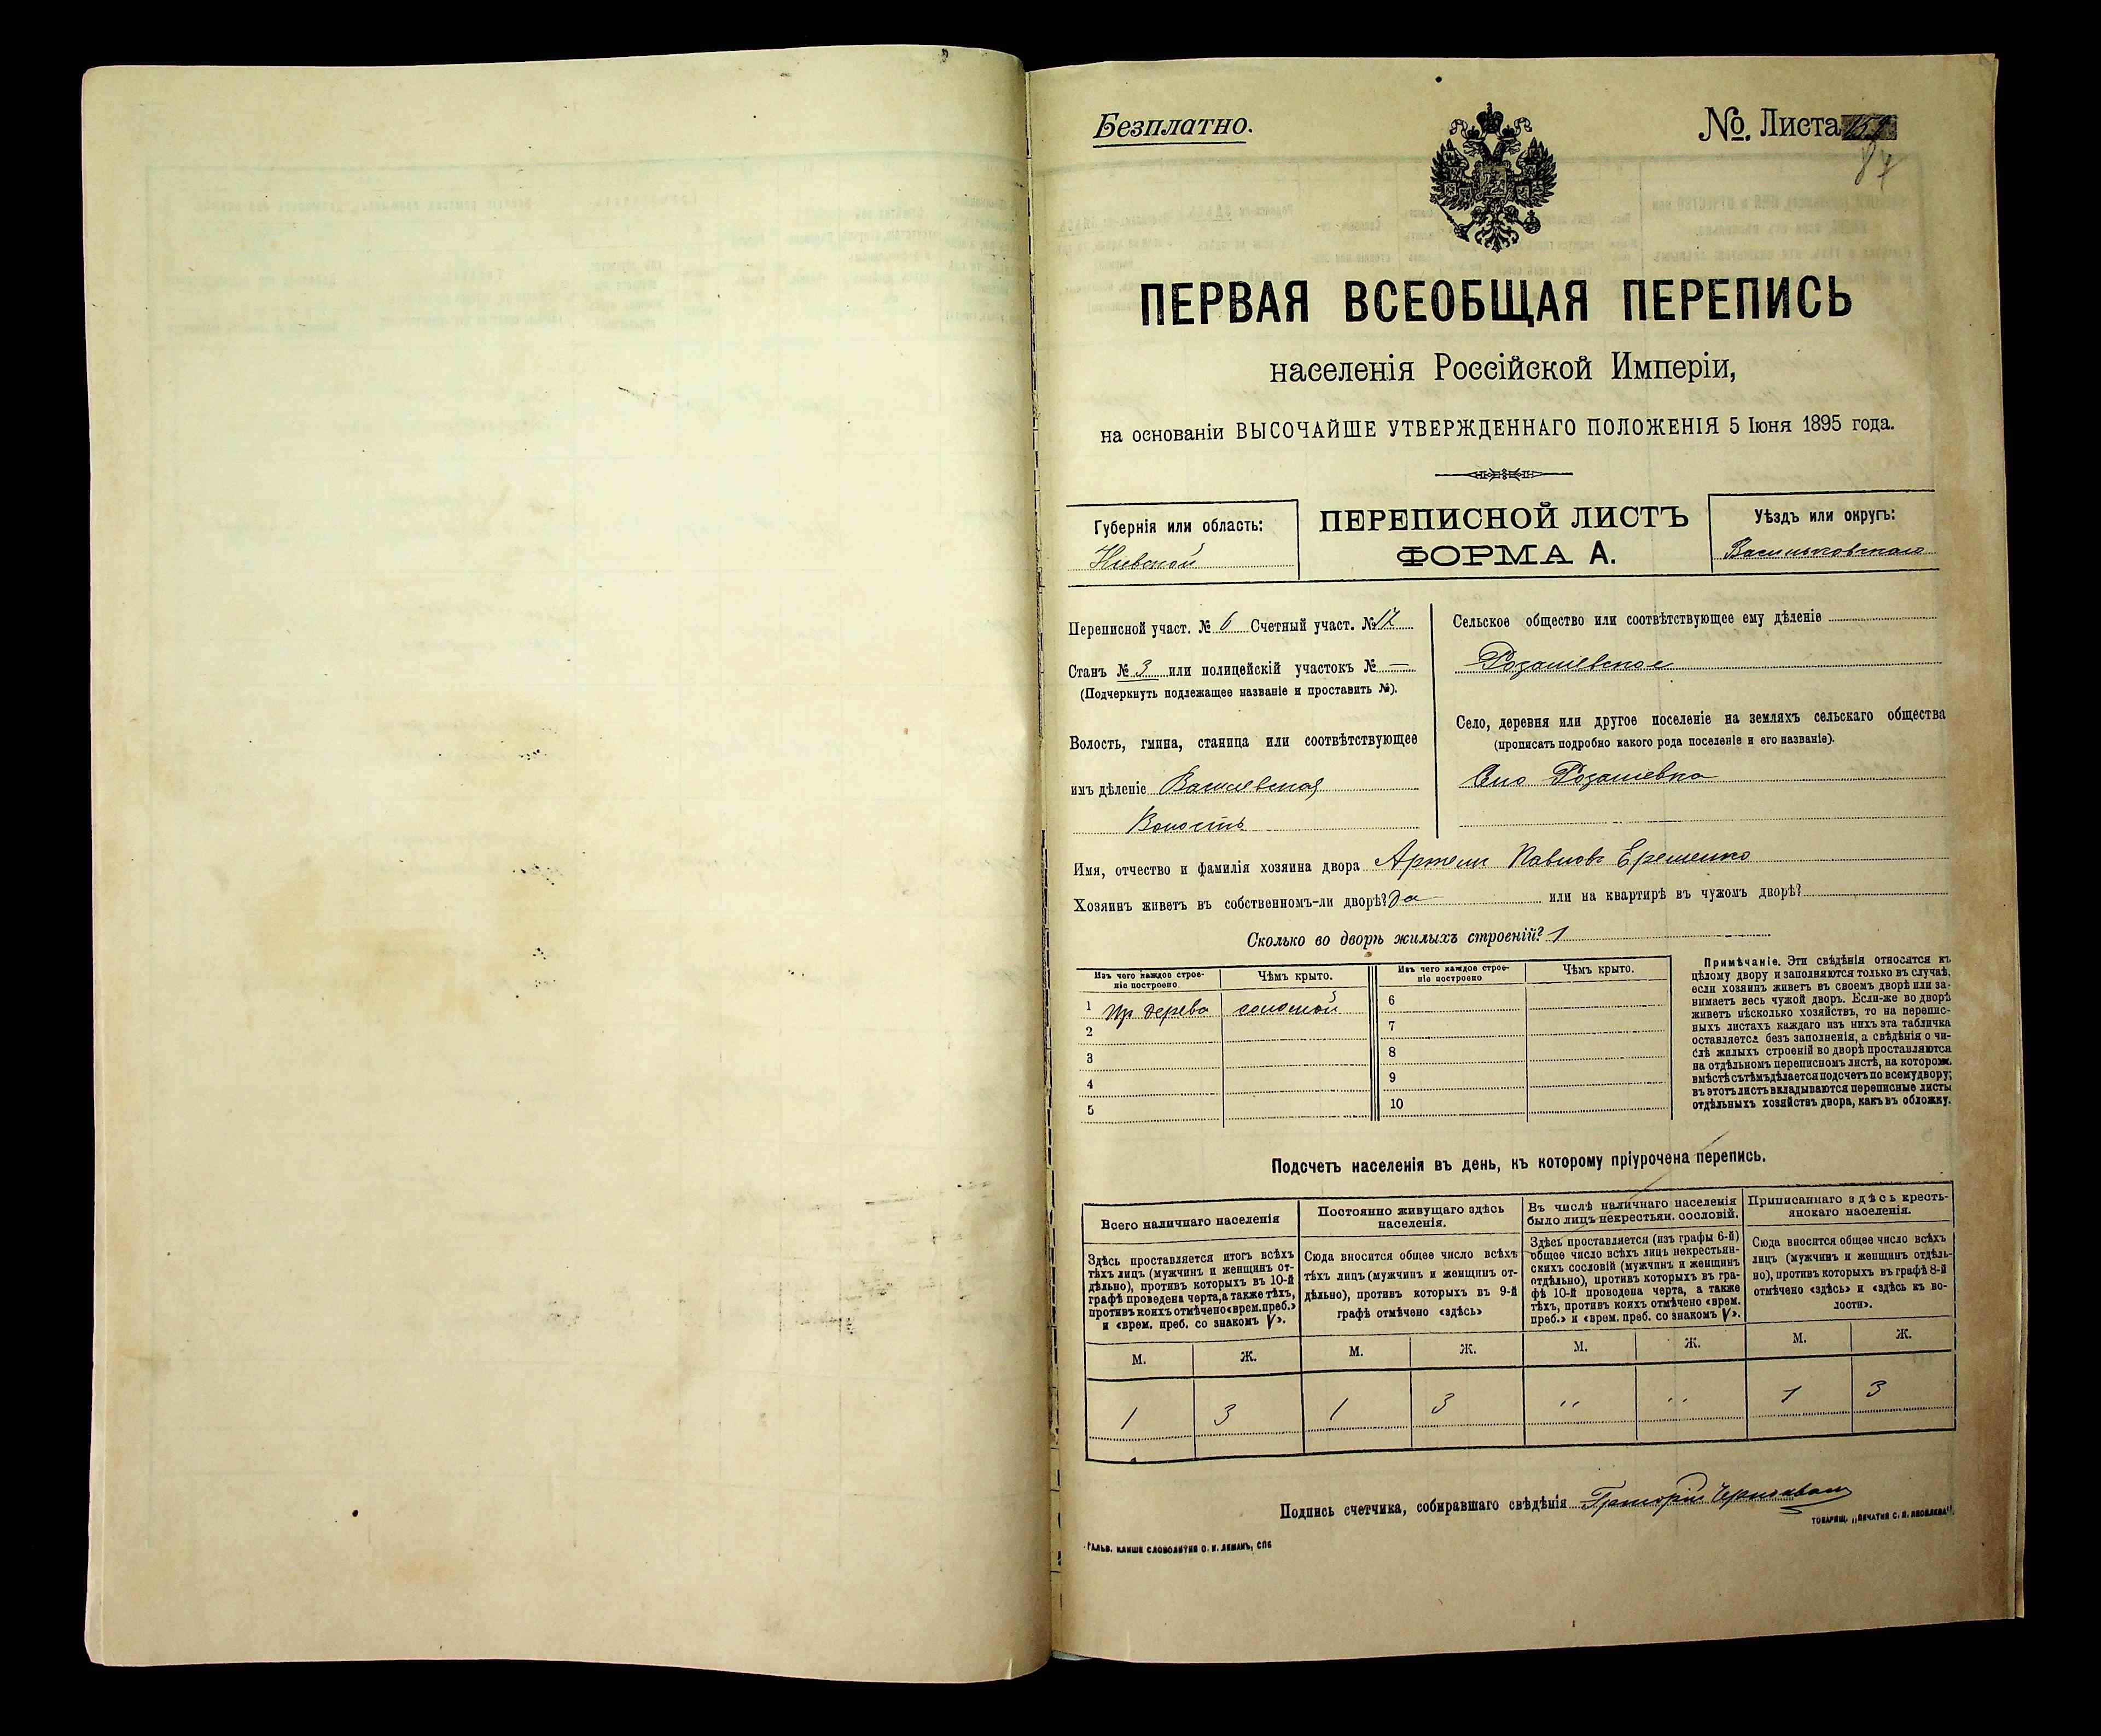 Безплатно.
№ Листа
87
ПЕРВАЯ ВСЕОБЩАЯ ПЕРЕПИСЬ
населенія Россійской Имперіи,
на основаніи ВЫСОЧАЙШЕ УТВЕРЖДЕННАГО ПОЛОЖЕНІЯ 5 Іюня 1895 года.
Губернія или область:
Кіевской
ПЕРЕПИСНОЙ ЛИСТЪ
ФОРМА А.
Уѣздъ или округъ:
Васильковскаго
Переписной участ. № 6 Счетный участ. № 17
Станъ № 3 или полицейскій участокъ № —
(Подчеркнуть подлежащее названіе и проставить №).
Волость, гмина, станица или соотвѣтствующее
имъ дѣленіе
Волость
Сельское общество или соотвѣтствующее ему дѣленіе
Розаліевское
Село, деревня или другое поселеніе на земляхъ сельскаго общества
(прописать подробно какого рода поселеніе и его названіе).
Село Розаліевка
Имя, отчество и фамилія хозяина двора Артемъ Павловъ Еременко
Хозяинъ живетъ въ собственномъ-ли дворѣ? Да или на квартирѣ въ чужомъ дворѣ?
Сколько во дворѣ жилыхъ строеній? 1
Изъ чего каждое строе-
ніе построено
Чѣмъ крыто.
Изъ чего каждое строе-
ніе построено
Чѣмъ крыто.
1 дерева соломой
2
3
4
5
6
7
8
9
10
Примѣчаніе. Эти свѣдѣнія относятся къ
цѣлому двору и заполняются только въ случаѣ,
если хозяинъ живетъ въ своемъ дворѣ или за-
нимаетъ весь чужой дворъ. Если-же во дворѣ
живетъ нѣсколько хозяйствъ, то на перепис-
ныхъ листахъ каждаго изъ нихъ эта табличка
оставляется безъ заполненія, а свѣдѣнія о чи-
слѣ жилыхъ строеній во дворѣ проставляются
на отдѣльномъ переписномъ листѣ, на которомъ
вмѣстѣ съ тѣмъ дѣлается подсчетъ по всему двору;
въ этотъ листъ вкладываются переписные листы
отдѣльныхъ хозяйствъ двора, какъ въ обложку.
Подсчетъ населенія въ день, къ которому пріурочена перепись.
Всего наличнаго населенія
Здѣсь проставляется итогъ всѣхъ
тѣхъ лицъ (мужчинъ и женщинъ от-
дѣльно), противъ которыхъ въ 10-й
графѣ проведена черта, а также тѣхъ,
противъ коихъ отмѣчено «врем. преб.»
и «врем. преб. со знакомъ V».
Постоянно живущаго здѣсь
населенія.
Сюда вносится общее число всѣхъ
тѣхъ лицъ (мужчинъ и женщинъ от-
дѣльно), противъ которыхъ въ 9-й
графѣ отмѣчено «здѣсь»
Въ числѣ наличнаго населенія
было лицъ некрестьян. сословій.
Здѣсь проставляется (изъ графы 6-й)
общее число всѣхъ лицъ некрестьян-
скихъ сословій (мужчинъ и женщинъ
отдѣльно), противъ которыхъ въ гра-
фѣ 10-й проводена черта, а также
тѣхъ, противъ коихъ отмѣчено «врем.
преб.» и «врем. преб. со знакомъ V».
Приписаннаго здѣсь кресть-
янскаго населенія.
Сюда вносится общее число всѣхъ
лицъ (мужчинъ и женщинъ отдѣль-
но), противъ которыхъ въ графѣ 8-й
отмѣчено «здѣсь» и «здѣсь къ во-
лости».
М. Ж. М. Ж. М. Ж. М. Ж.
1 3 1 3 " " 1 3
Подпись счетчика, собиравшаго свѣдѣнія Григорій
ТОВАРИЩ. „ПЕЧАТНЯ С. П. ЯКОВЛЕВА".
ГАЛЬВ. КЛИШЕ СЛОВОЛИТНИ О. И. ЛЕМАНЪ, СПБ